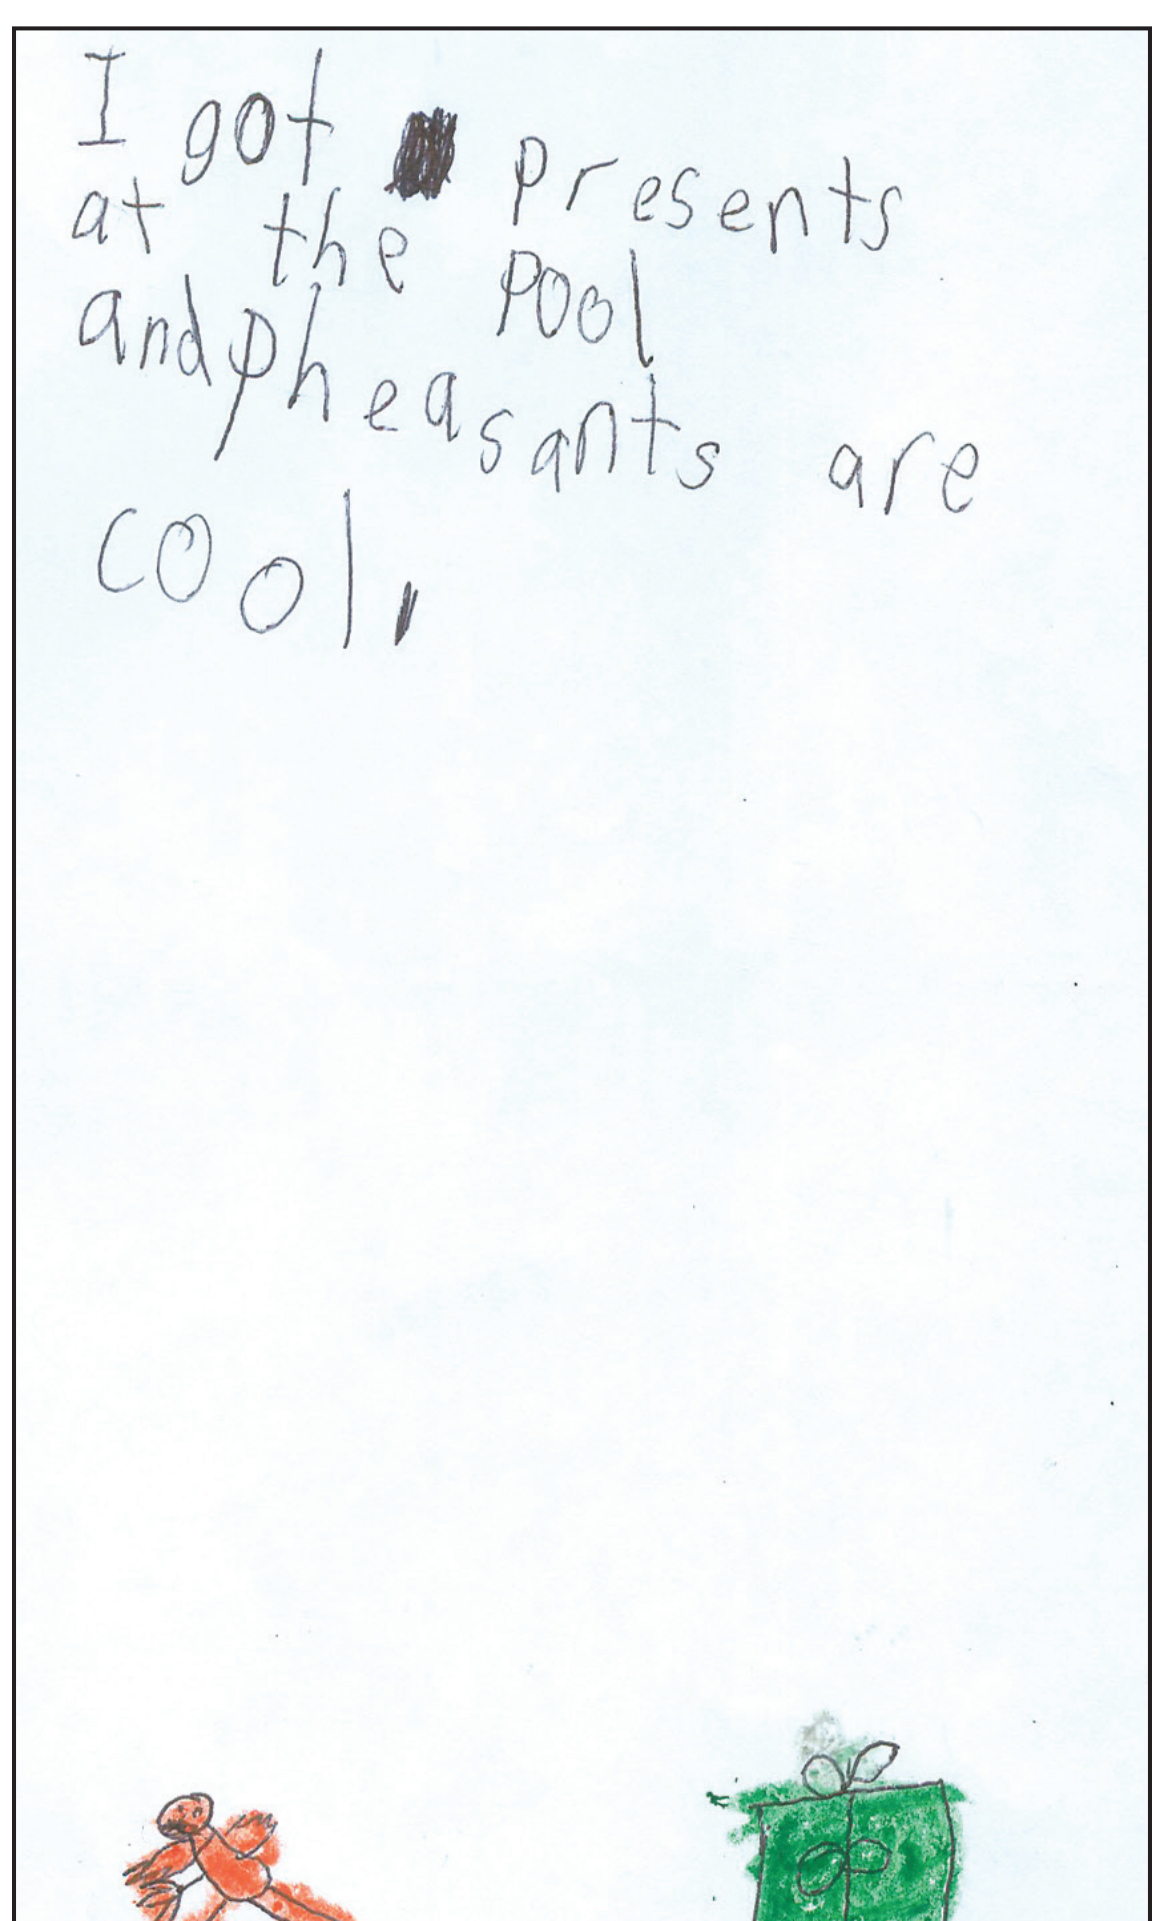 I got presents
at the Pool
and pheasants are
cool.